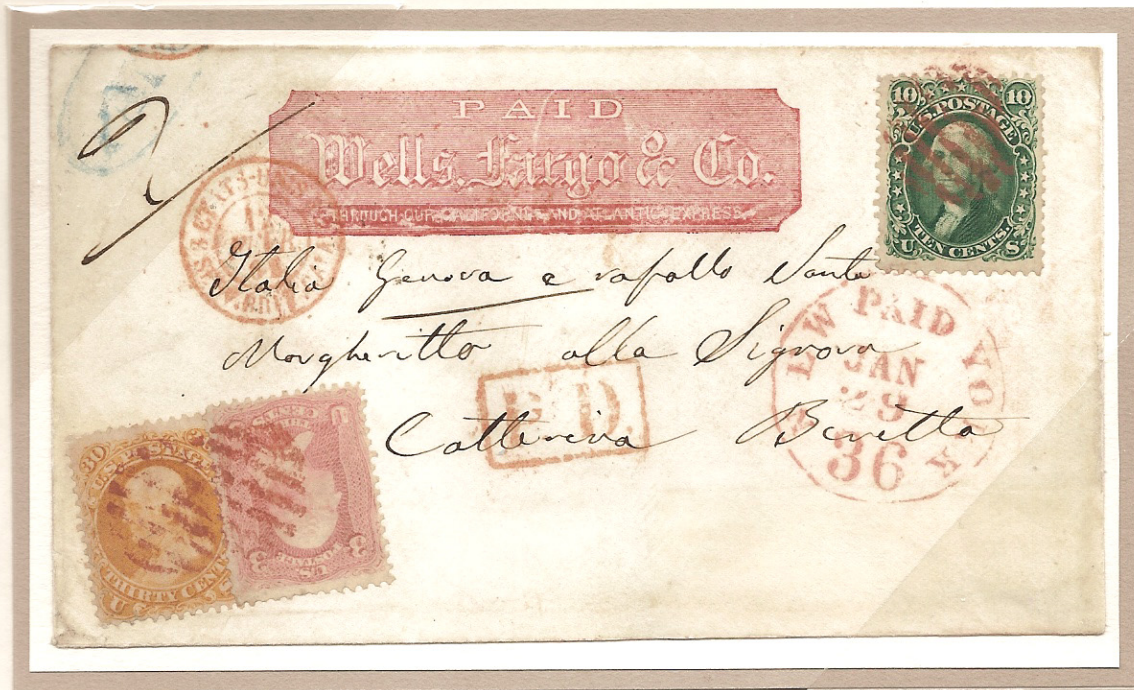 PAID
Wells, Fargo & Co.
THROUGH OUR CALIFORNIA AND ATLANTIC EXPRESS.
10 10
U.S. POSTAGE
TEN CENTS.
U S
2/
Italia Genova e rapallo Santa
Margheritta alla Signora
Catterina Beretta
NEW PAID YORK
JAN
29
36
P.D.
30
U.S. POSTAGE
THIRTY CENTS
U S
3